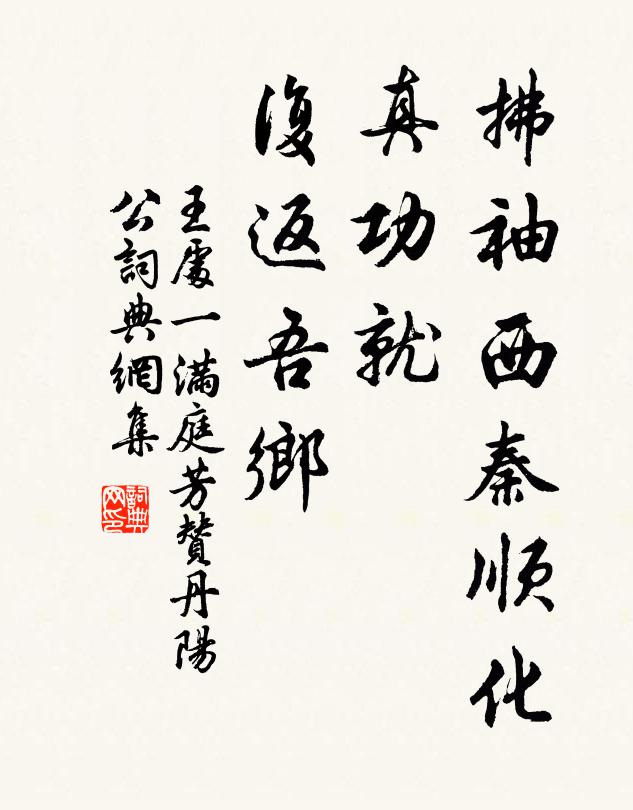 拂袖西秦順化
真功就
復返吾鄉
王處一滿庭芳贊丹陽
公詞典網集
詞典
网印